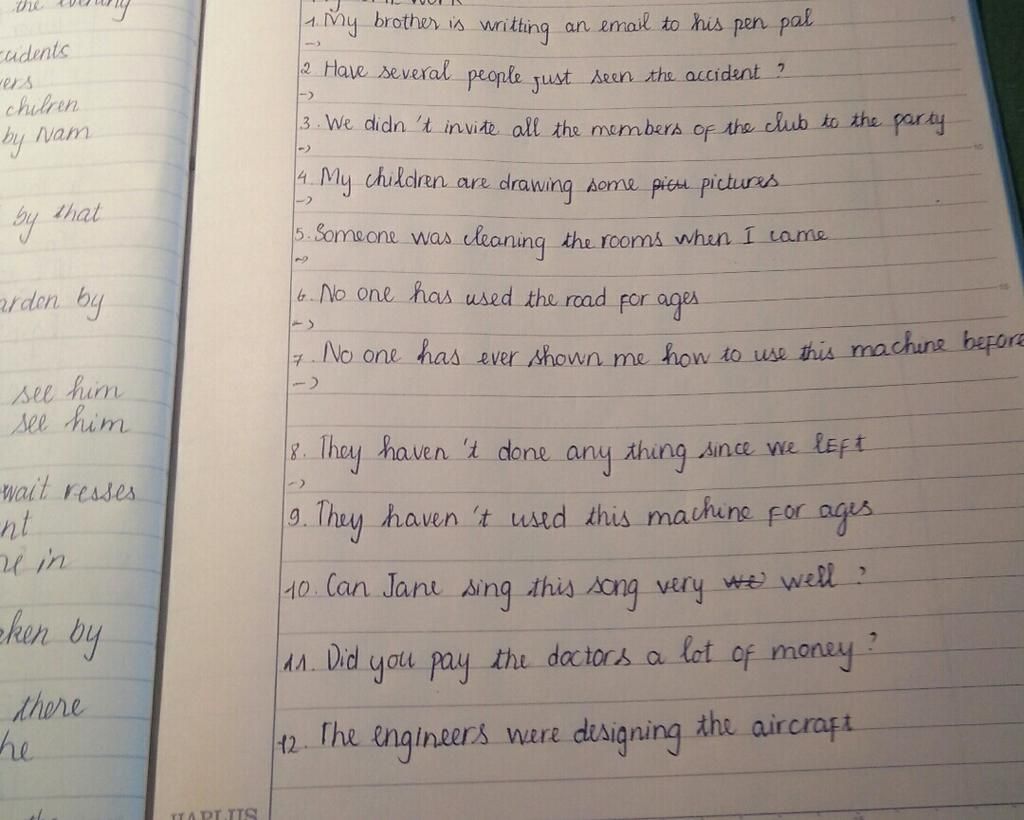 the evening
cidents
ers
chilren
by Nam
by that
arden by
see him
see him
wait resses
nt
ne in
ken by
there
he
1. My brother is writting an email to his pen pal
->
2 Have several people just seen the accident ?
->
3. We didn't invite all the members of the club to the party
->
4. My children are drawing some pictures
->
5. Someone was cleaning the rooms when I came
->
6. No one has used the road for ages
->
7. No one has ever shown me how to use this machine before
->
8. They haven't done any thing since we left
->
9. They haven't used this machine for ages
10. Can Jane sing this song very well ?
11. Did you pay the doctors a lot of money ?
12. The engineers were designing the aircraft